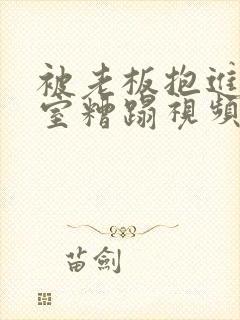 被老板抱进
室糟蹋視頻
苗劍